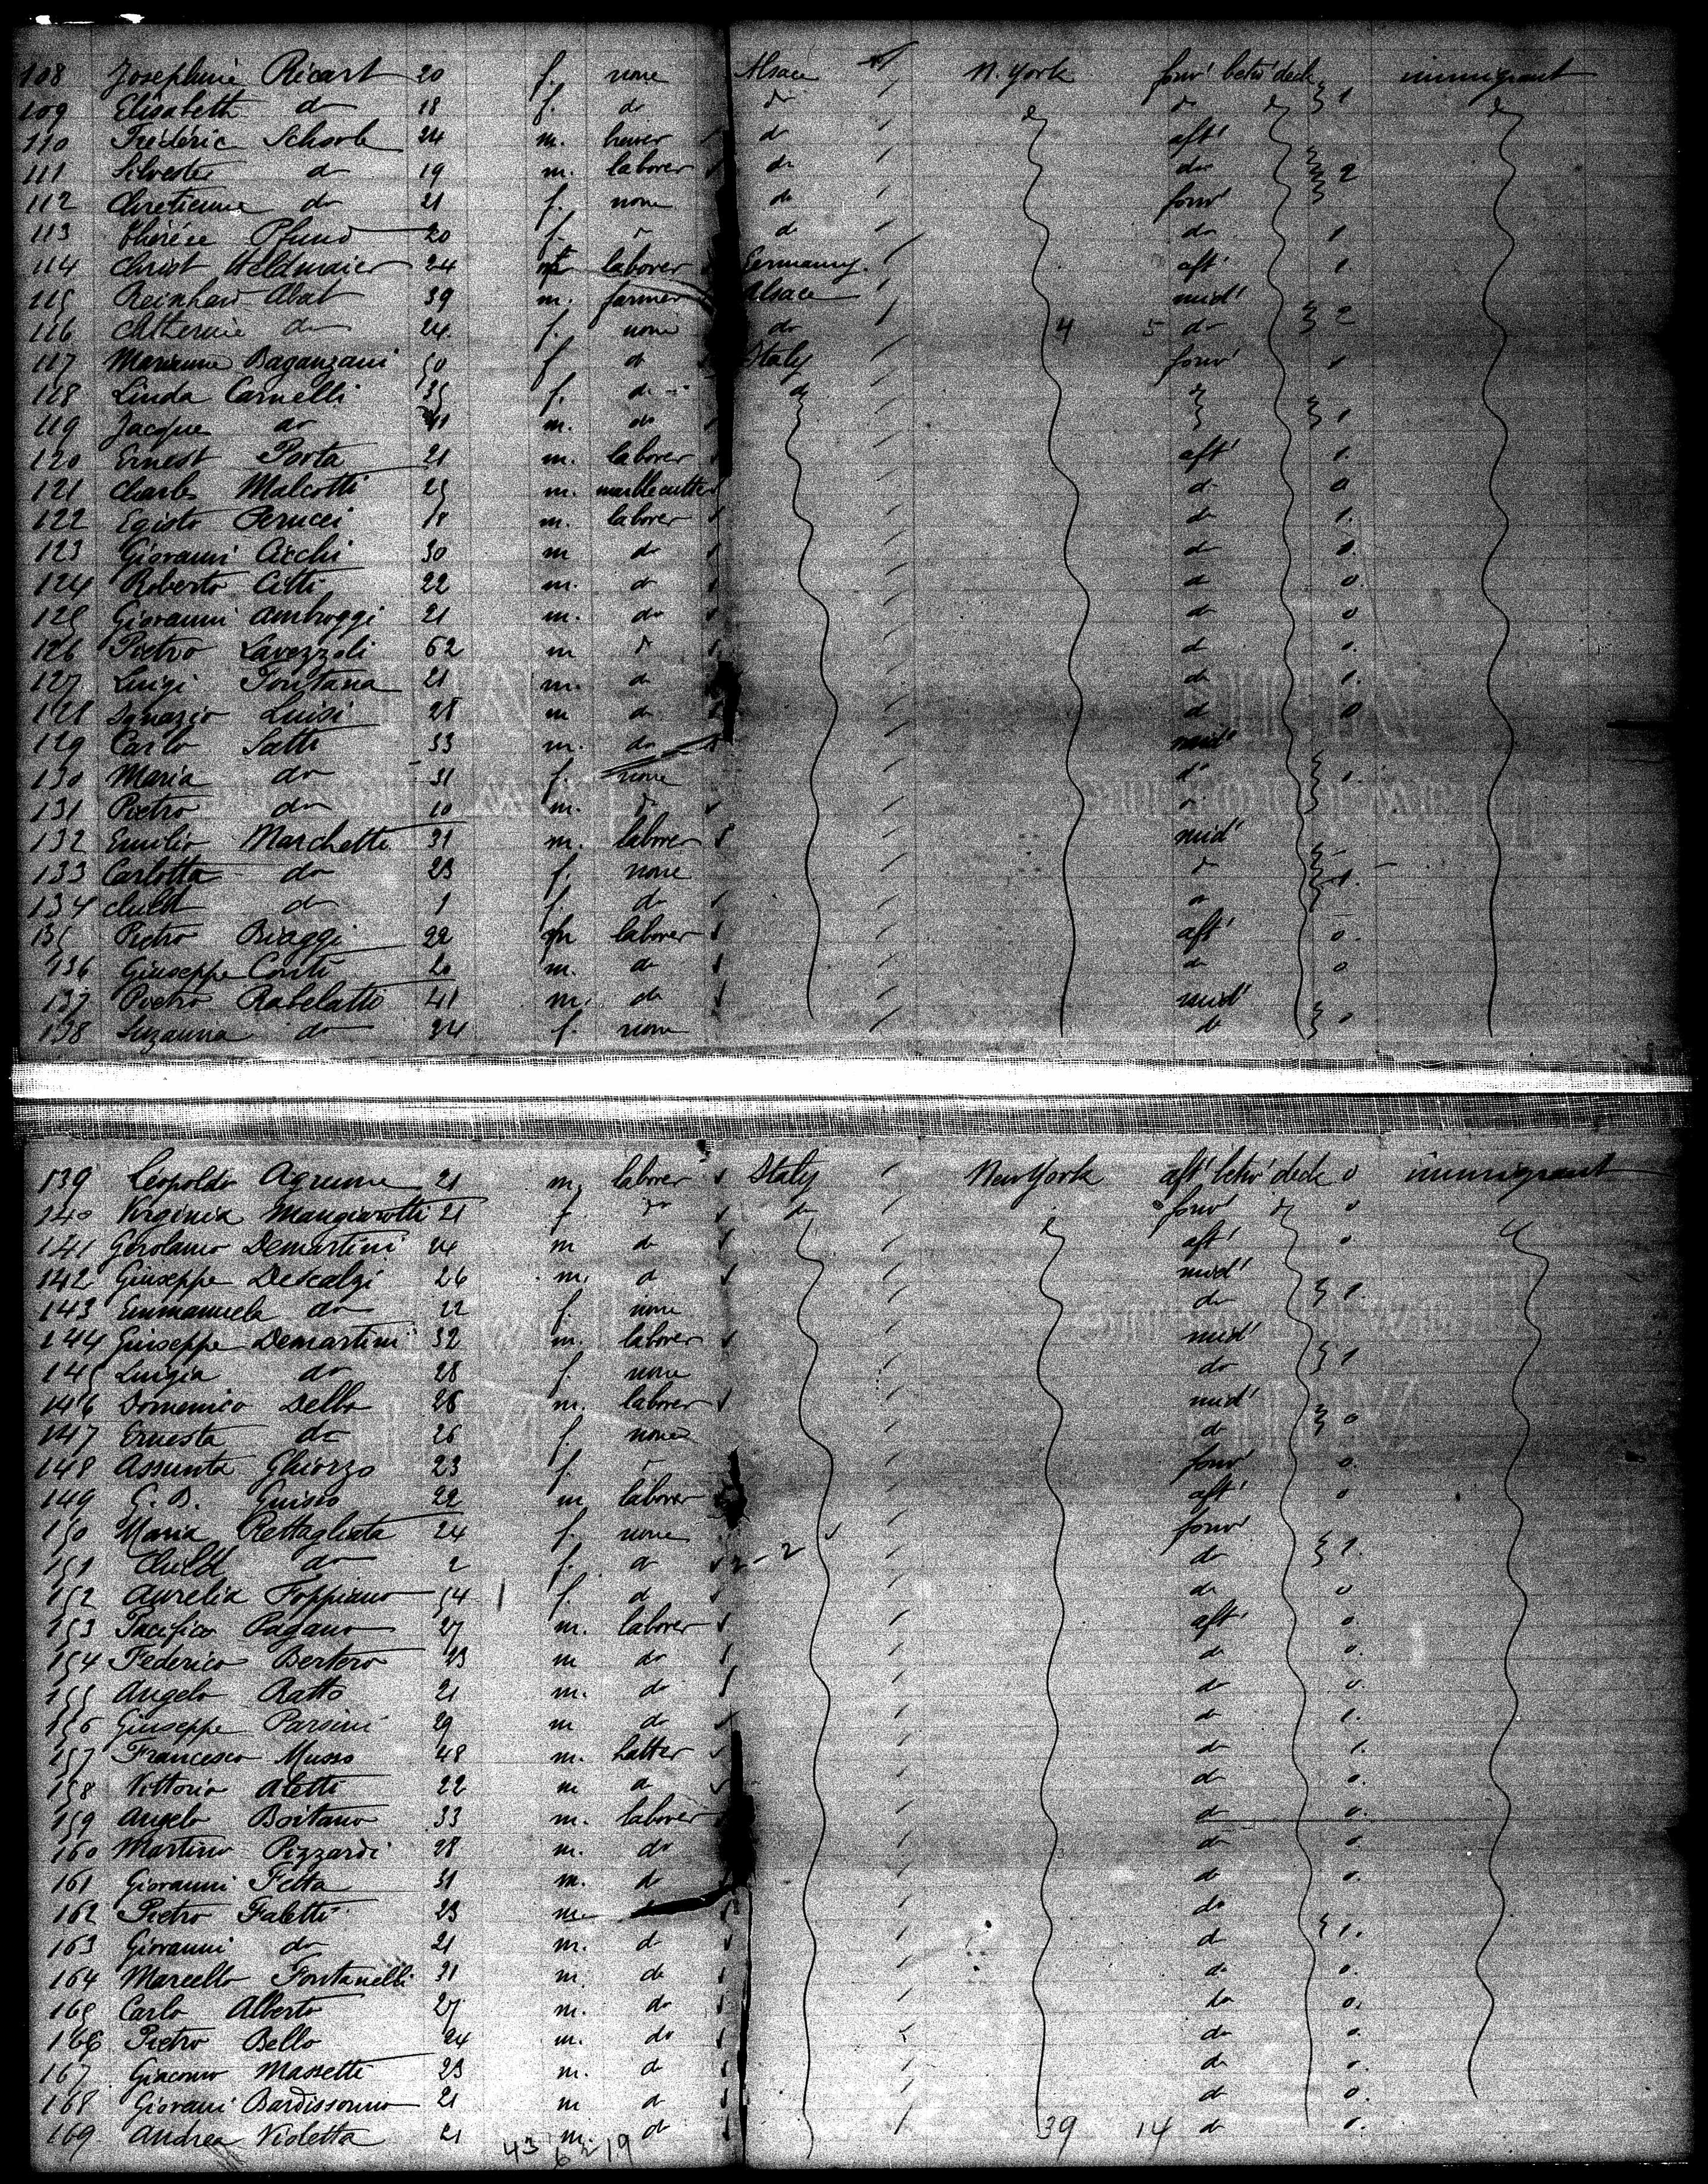 108 Josephine Ricart 20 f. none Alsace N. York forw' betw' deck immigrant
109 Elisabeth do 18 f. do do do do 1
110 Frédéric Schorle 24 m. hewer do aft'
111 Silvester do 19 m. laborer do do 2
112 Chretienne do 21 f. none do forw'
113 Thérèse Pfund 20 f. do do do 1
114 Christ Heldmaier 24 m laborer Germany. aft' 1.
115 Reinhard Abat 39 m. farmer Alsace mid'
116 Catherine do 24. f. none do 4 5 do 2
117 Marianne Baganzani 50 f do Italy forw' 1
118 Linda Carnelli 35 f. do do do
119 Jacque do 11 m. do 1
120 Ernest Porta 21 m. laborer aft' 1.
121 Charles Malcotti 25 m. marble cutter do 0
122 Egisto Perucci 18 m. laborer do 1.
123 Giovanni Cicchi 30 m do do 0
124 Roberto Citti 22 m. do do 0.
125 Giovanni Ambroggi 21 m. do do 0
126 Pietro Lavezzoli 62 m do do 0.
127 Luigi Fontana 21 m. do do 1.
128 Ignazio Luisi 28 m do do 0
129 Carlo Satti 33 m. do mid'
130 Maria do 31 f. none do 1.
131 Pietro do 10 m. do do
132 Emilio Marchetti 31 m. laborer mid'
133 Carlotta do 23 f. none do 1.
134 child do 1 f. do do
135 Pietro Biaggi 22 m laborer aft' 0.
136 Giuseppe Conti 20 m. do do 0
137 Pietro Rabelatti 41 m. do mid'
138 Suzanna do 34 f. none do 0
139 Leopoldo Agrume 21 m. laborer Italy New York aft' betw' deck 0 immigrant
140 Virginia Mangiarotti 21 f. do do forw' do 0
141 Gerolamo Demartini 24 m do aft' 0
142 Giuseppe Descalzi 26 m. do mid'
143 Emmanuela do 22 f. none do 1.
144 Giuseppe Demartini 32 m. laborer mid'
145 Luigia do 28 f. none do 1
146 Domenico Dello 26 m. laborer mid'
147 Ernesta do 26 f. none do 0
148 Assunta Ghiorzo 23 f. do forw' 0.
149 G. B. Guisso 22 m. laborer aft' 0
150 Maria Rettagliata 24 f. none forw'
151 Child do 2 f. do 2 - 2 do 1.
152 Aurelia Foppiano 54 f. do do 0
153 Pacifico Pagano 27 m. laborer aft' 0.
154 Federico Bertero 23 m do do 0.
155 Angelo Ratto 21 m. do do 0.
156 Giuseppe Parsini 29 m do do 1.
157 Francesco Musso 48 m. hatter do 1.
158 Vittorio Aletti 22 m do do 0.
159 Angelo Boitano 33 m. laborer do 0.
160 Martino Pizzardi 28 m. do do 0.
161 Giovanni Fetta 31 m. do do 0.
162 Pietro Faletti 23 m. do do
163 Giovanni do 21 m. do do 1.
164 Marcello Fontanelli 31 m. do do 0.
165 Carlo Alberto 27 m. do do 0.
166 Pietro Bello 24 m. do do 0.
167 Giacomo Massetti 23 m. do do 0.
168 Giovani Bardissonno 21 m do do 0.
169 Andrea Violetta 21 m. do 39 14 do 0.
43 6 2 19